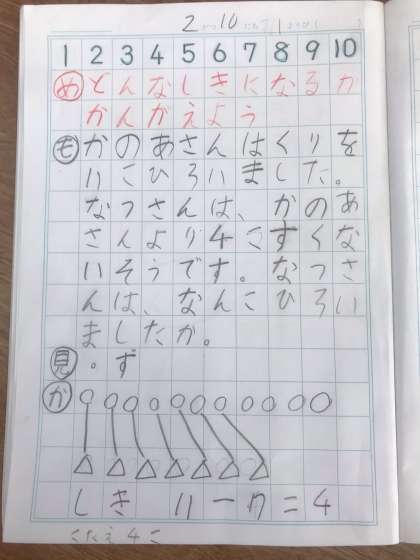 2がつ10にち
1 2 3 4 5 6 7 8 9 10
め どんなしきになるか
かんがえよう
も かのあさんはくりを
11こひろいました。
なつさんは、かのあ
さんより4こすくな
いそうです。なつさ
んは、なんこひろい
ましたか。
見 。ず
か
しき 11-7=4
こたえ4こ